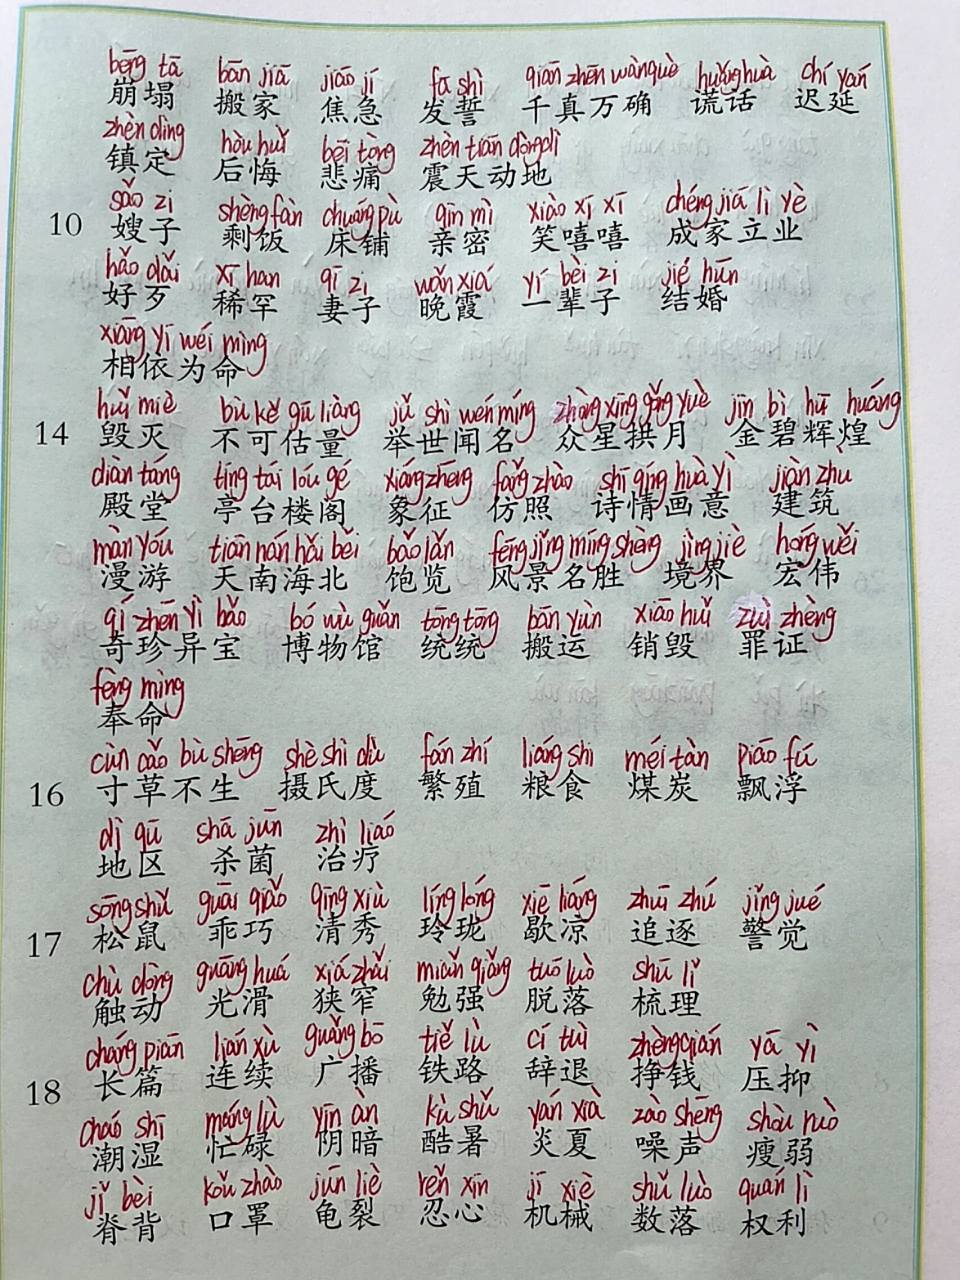 bēng tā bān jiā jiāo jí fā shì qiān zhēn wàn què huǎng huà chí yán
崩塌 搬家 焦急 发誓 千真万确 谎话 迟延
zhèn dìng hòu huǐ bēi tòng zhèn tiān dòng dì
镇定 后悔 悲痛 震天动地
sǎo zi shèng fàn chuáng pù qīn mì xiào xī xī chéng jiā lì yè
10 嫂子 剩饭 床铺 亲密 笑嘻嘻 成家立业
hǎo dǎi xī han qī zi wǎn xiá yí bèi zi jié hūn
好歹 稀罕 妻子 晚霞 一辈子 结婚
xiāng yī wéi mìng
相依为命
huǐ miè bù kě gū liàng jǔ shì wén míng zhòng xīng gǒng yuè jīn bì hū huáng
14 毁灭 不可估量 举世闻名 众星拱月 金碧辉煌
diàn táng tíng tái lóu gé xiàng zhēng fǎng zhào shī qíng huà yì jiàn zhù
殿堂 亭台楼阁 象征 仿照 诗情画意 建筑
màn yóu tiān nán hǎi běi bǎo lǎn fēng jǐng míng shèng jìng jiè hóng wěi
漫游 天南海北 饱览 风景名胜 境界 宏伟
qí zhēn yì bǎo bó wù guǎn tǒng tǒng bān yùn xiāo huǐ zuì zhèng
奇珍异宝 博物馆 统统 搬运 销毁 罪证
fèng mìng
奉命
cùn cǎo bù shēng shè shì dù fán zhí liáng shi méi tàn piāo fú
16 寸草不生 摄氏度 繁殖 粮食 煤炭 飘浮
dì qū shā jūn zhì liáo
地区 杀菌 治疗
sōng shǔ guāi qiǎo qīng xiù líng lóng xiē liáng zhuī zhú jǐng jué
17 松鼠 乖巧 清秀 玲珑 歇凉 追逐 警觉
chù dòng guāng huá xiá zhǎi miǎn qiǎng tuō luò shū lǐ
触动 光滑 狭窄 勉强 脱落 梳理
cháng piān lián xù guǎng bō tiě lù cí tuì zhèng qián yā yì
18 长篇 连续 广播 铁路 辞退 挣钱 压抑
cháo shī máng lù yīn àn kù shǔ yán xià zào shēng shòu ruò
潮湿 忙碌 阴暗 酷暑 炎夏 噪声 瘦弱
jǐ bèi kǒu zhào jūn liè rěn xīn jī xiè shǔ luò quán lì
脊背 口罩 龟裂 忍心 机械 数落 权利